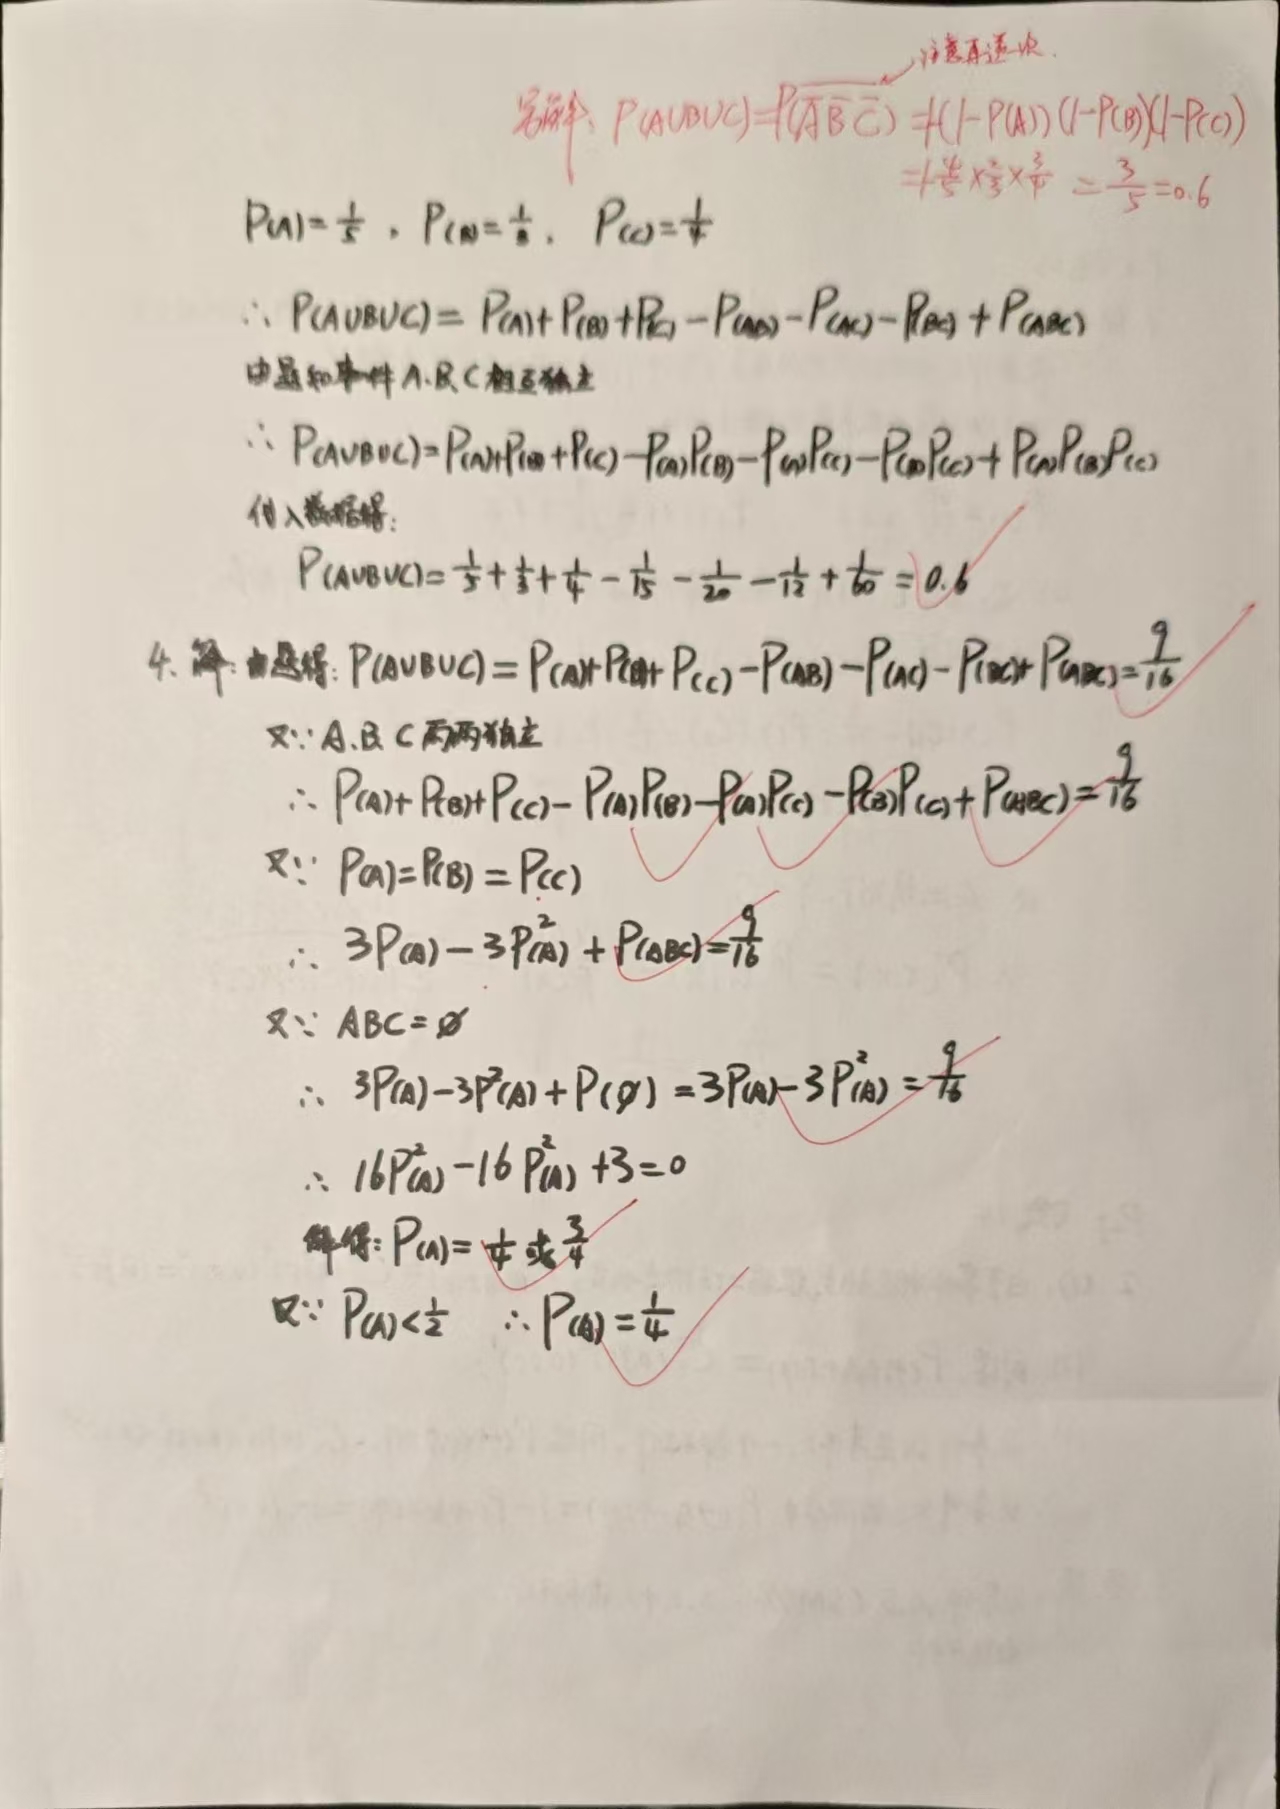 注意再逆一次.
另解: P(A∪B∪C)=P(\overline{\overline{A} \overline{B} \overline{C}})=1-(1-P(A))(1-P(B))(1-P(C))
=1-4/5×2/3×3/4=3/5=0.6
P(A)=1/5, P(B)=1/3, P(C)=1/4
∴ P(A∪B∪C)=P(A)+P(B)+P(C)-P(AB)-P(AC)-P(BC)+P(ABC)
由题知事件A.B.C相互独立
∴ P(A∪B∪C)=P(A)+P(B)+P(C)-P(A)P(B)-P(A)P(C)-P(B)P(C)+P(A)P(B)P(C)
代入数据得:
P(A∪B∪C)=1/5+1/3+1/4-1/15-1/20-1/12+1/60=0.6
4. 解: 由题得: P(A∪B∪C)=P(A)+P(B)+P(C)-P(AB)-P(AC)-P(BC)+P(ABC)=9/16
又∵ A.B.C两两独立
∴ P(A)+P(B)+P(C)-P(A)P(B)-P(A)P(C)-P(B)P(C)+P(ABC)=9/16
又∵ P(A)=P(B)=P(C)
∴ 3P(A)-3P²(A)+P(ABC)=9/16
又∵ ABC=∅
∴ 3P(A)-3P²(A)+P(∅)=3P(A)-3P²(A)=9/16
∴ 16P²(A)-16P²(A)+3=0
解得: P(A)=1/4或3/4
又∵ P(A)<1/2 ∴ P(A)=1/4